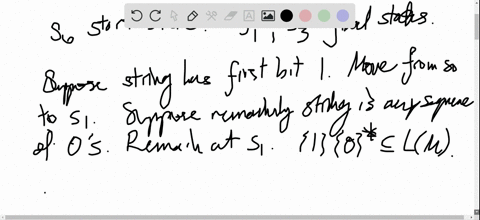 S₀ start S₁, S₃ final states.
Suppose string has first bit 1. Move from s₀
to s₁. Suppose remaining string is any sequence
of 0's. Remain at s₁. {1}{0}* ⊆ L(M).